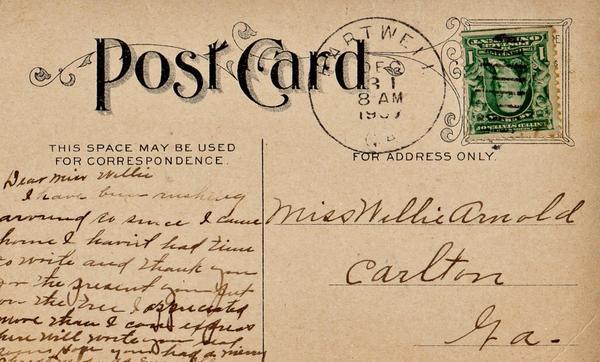 Post Card
HARTWELL
DEC
31
8 AM
1907
GA.
1
1
THIS SPACE MAY BE USED
FOR CORRESPONDENCE.
FOR ADDRESS ONLY.
Dear Miss Willie
I have been rushing
around so since I came
home I havn't had time
to write and thank you
for the present you put
on the tree I appreciated
more than I can express
here will write you
hope you had a merry
Miss Willie Arnold
Carlton
Ga.